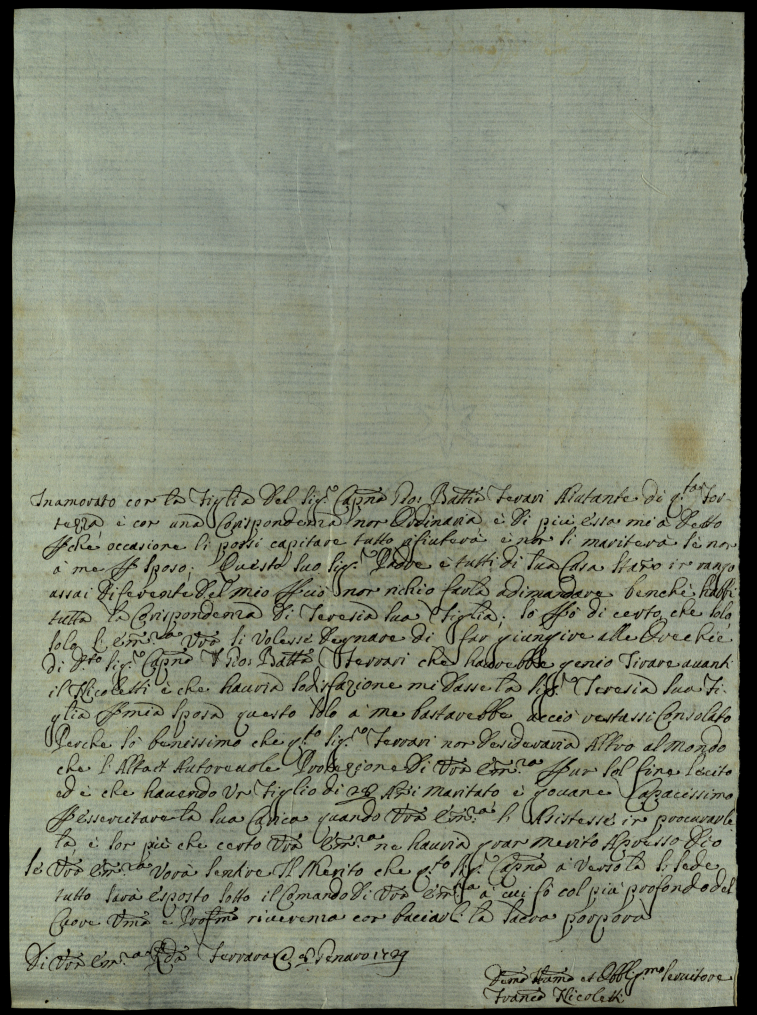 Inamorato con la Figlia Del Sig.r Capnō Gio: Battā Ferari Aiutante di q.ta For-
tezza è con una Corispondenza non Ordinaria è di più essa mi à detto
che occasione li possi capitare tutto rifiuterà è non si mariterà se non
à me Sposo; Questo suo Sig.r Padre è tutti di sua Casa Stano in rango
assai diferente del mio Però non richio farla adimandare benche habbi
tutta la Corispondenza di Teresia sua Figlia; Io sò di certo, che solo,
solo l'Em.za Vrā si volesse Degnare di far giungire alle Orechie
di D.to Sig.r Capnō Gio: Battā Ferrari che haurebbe genio Tirare auanti
il Nicoletti è che hauria sodisfazione mi dasse la Sig.ra Teresia sua Fi-
glia mia Sposa questo solo à me bastarebbe acciò restassi Consolato
Perche sò benissimo che q.to Sig.r Ferrari non desideraria Altro al Mondo
che l'Alta et Autoreuole Protezzione di Vrā Em.za Pur sol fine lecito
ed è che hauendo Un Figlio di 28 Ani maritato è giouane Capacissimo
P essercitare la sua Carica quando Vrā Em.za li Asistesse in procurarle
la, è son più che certo Vrā Em.za ne hauria gran merito Apresso Dio
Se Vrā Em.za Vorà sentire Il Merito che q.to Sig.r Capnō à Verso la S. Sede
tutto sarà esposto sotto il Comando di Vrā Em.za à cui fò col più profondo del
Cuore Umā è Profmā riuerenza con baciarl: la Sacra porpora
Di Vrā Em.za Ferrara Genaro 1729
Umō Deumō et Obblig.mo Seruitore
Francō Nicoletti